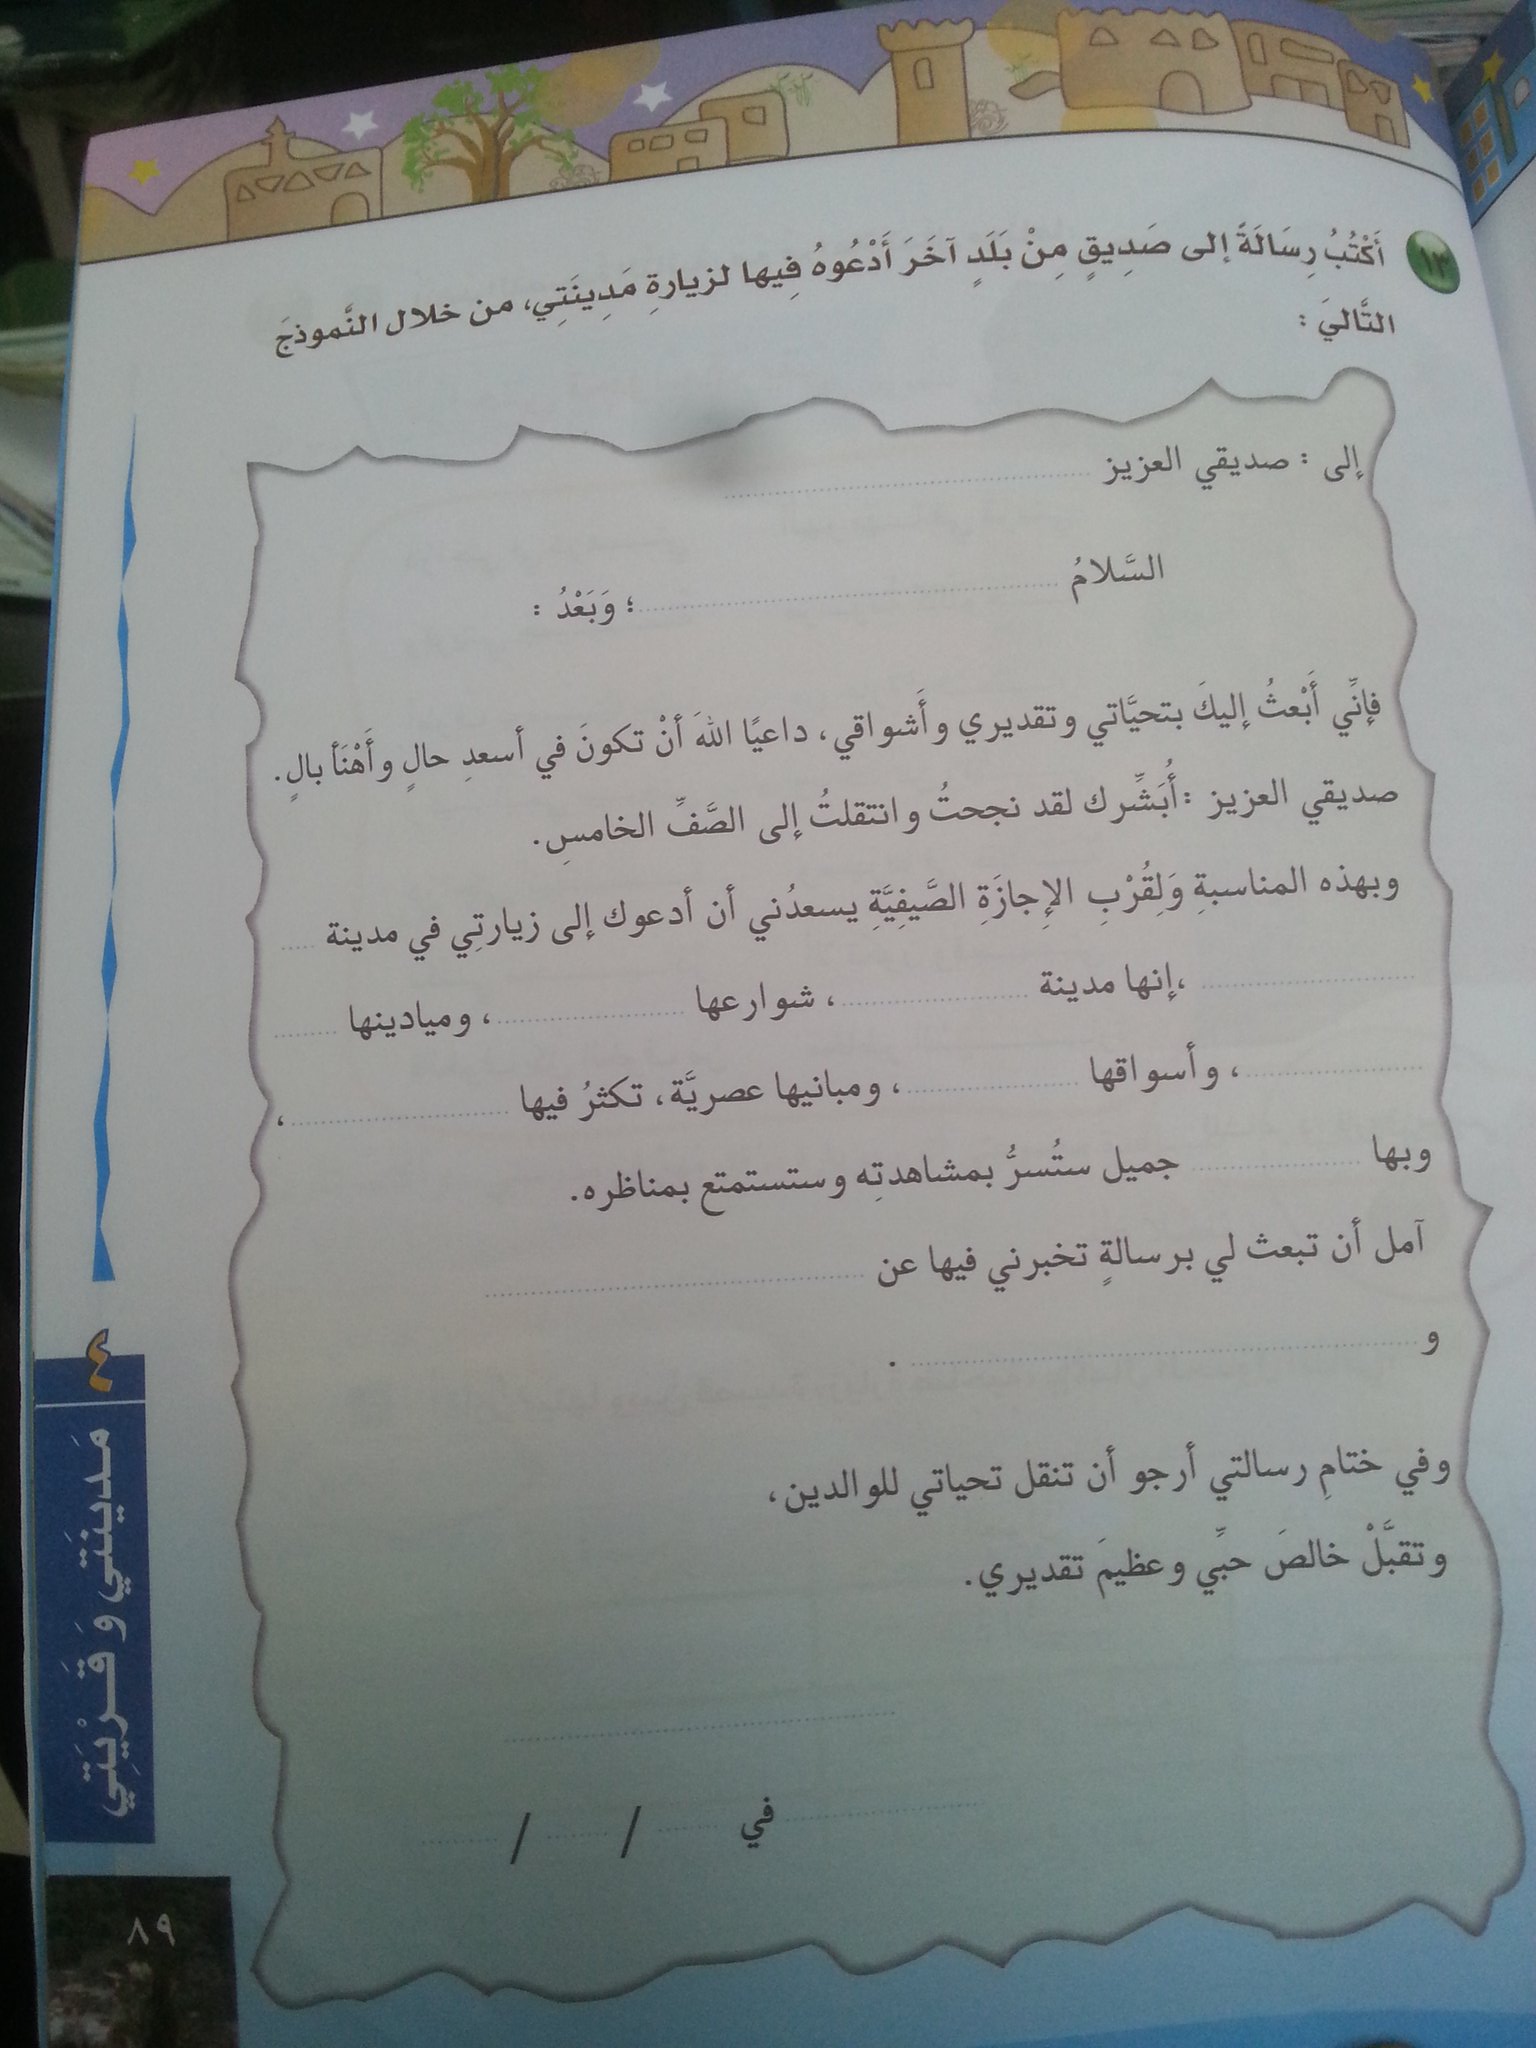 ١٣ أَكْتُبُ رِسَالَةً إلى صَدِيقٍ مِنْ بَلَدٍ آخَرَ أَدْعُوهُ فِيها لزيارةِ مَدِينَتِي، من خلال النَّموذجَ
التَّاليَ :
إلى : صديقي العزيز ..........
السَّلامُ .......... ؛ وَبَعْدُ :
فإنِّي أَبْعثُ إليكَ بتحيَّاتي وتقديري وأَشواقي، داعيًا اللهَ أنْ تكونَ في أسعدِ حالٍ وأَهْنَأ بالٍ.
صديقي العزيز : أُبَشِّرك لقد نجحتُ وانتقلتُ إلى الصَّفِّ الخامسِ.
وبهذه المناسبةِ وَلِقُرْبِ الإِجازَةِ الصَّيفِيَّةِ يسعدُني أن أدعوك إلى زيارتِي في مدينة .....
.......... ،إنها مدينة .......... ، شوارعها .......... ، وميادينها .....
.......... ، وأسواقها .......... ، ومبانيها عصريَّة، تكثرُ فيها .......... ،
وبها .......... جميل ستُسرُّ بمشاهدتِه وستستمتع بمناظره.
آمل أن تبعث لي برسالةٍ تخبرني فيها عن ..........
و .......... .
وفي ختامِ رسالتي أرجو أن تنقل تحياتي للوالدين،
وتقبَّلْ خالصَ حبِّي وعظيمَ تقديري.
..........
.......... في ..... / ..... / .....
٤ مَدينَتي وَقَرْيَتِي
٨٩